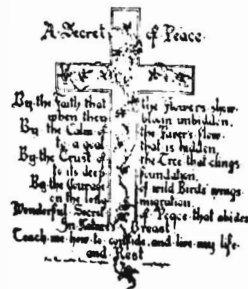 A Secret of Peace
By the Faith that the flowers show
when they bloom unbidden,
By the Calm of the River's flow
to a goal that is hidden,
By the Trust of the Tree that clings
to its deep foundation,
By the Courage of wild Birds' wings
on the long migration,
Wonderful Secret of Peace that abides
In Nature's Breast
Teach me how to confide, and live my life,
and Rest